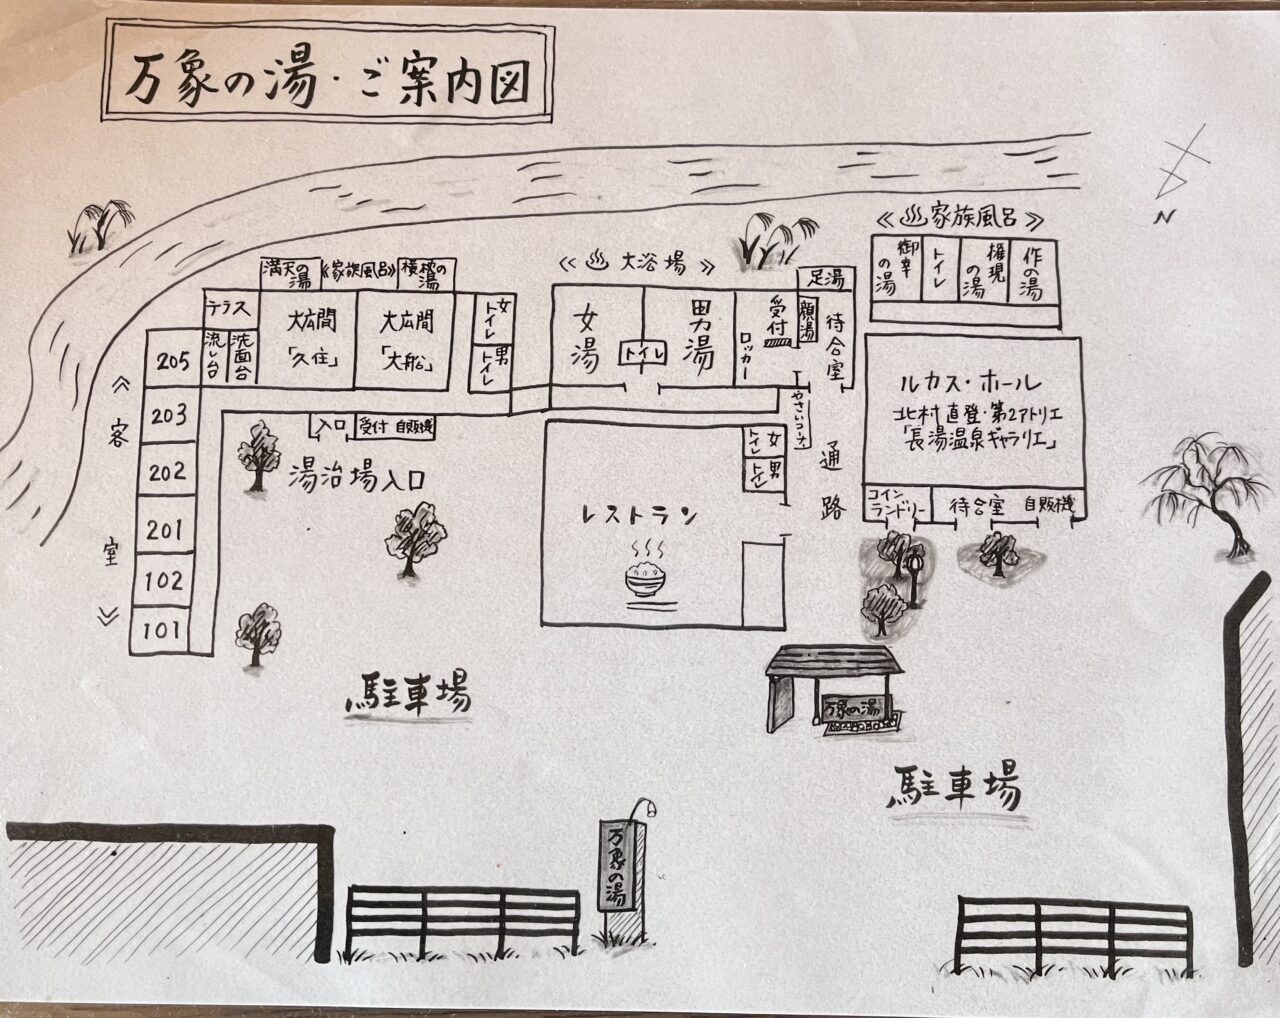 万象の湯・ご案内図
N
≪♨家族風呂≫
御幸の湯
トイレ
権現の湯
作の湯
≪♨大浴場≫
女湯
男湯
トイレ
ロッカー
受付
足湯
顔湯
待合室
やさいコーナー
通路
満天の湯
≪家族風呂≫
の湯
テラス
大広間
「久住」
大広間
「大船」
女トイレ
男トイレ
流し台
洗面台
≪客室≫
205
203
202
201
102
101
入口
受付 自販機
湯治場入口
レストラン
女トイレ
男トイレ
ルカス・ホール
北村直登・第2アトリエ
「長湯温泉ギャラリエ」
コインランドリー
待合室
自販機
万象の湯
駐車場
駐車場
万象の湯